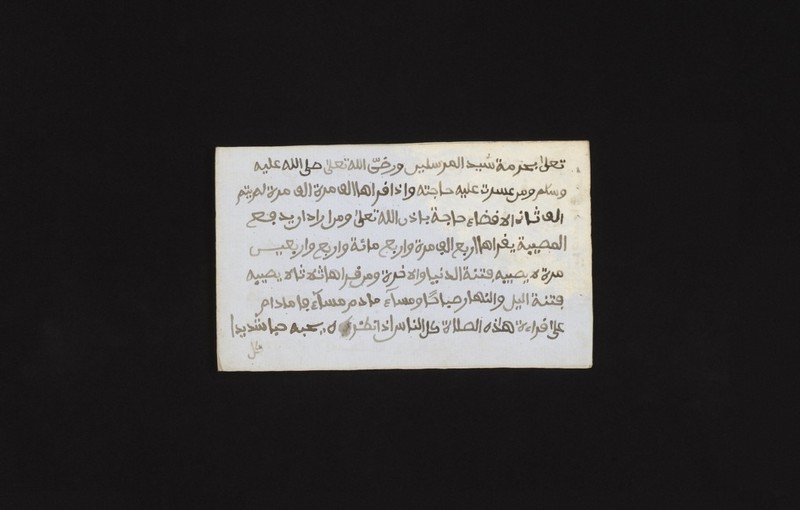 تعلى بحرمة سيد المرسلين ورضى الله تعلى صلى الله عليه
وسلم ومن عسرت عليه حاجته واذا قراها الف مرة الف مرة لم يتم
الف ثان الا قضاء حاجة باذن الله تعلى ومن اراد ان يدفع
المصيبة يقراها اربع الف مرة واربع مائة واربع واربعين
مرة لا يصيبه فتنة الدنيا والاخرة ومن قراها ثلاثا لا يصيبه
فتنة اليل والنهار صباحا ومساء مادم مساء ما مادام
على قراءة هذه الصلاة كل الناس اذا نظر ه يحبه حبا شديدا
كل